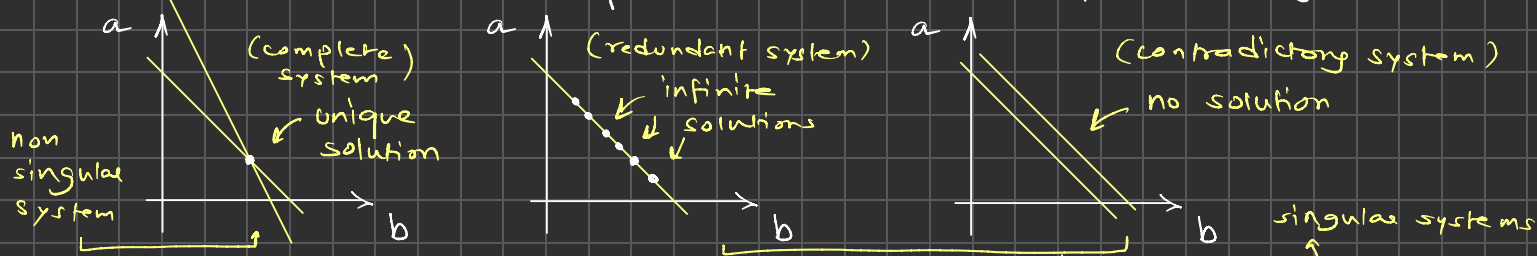 a
(complete)
system
unique
solution
non
singular
system
b
a
(redundant system)
infinite
solutions
b
a
(contradictong system)
no solution
b
singular systems